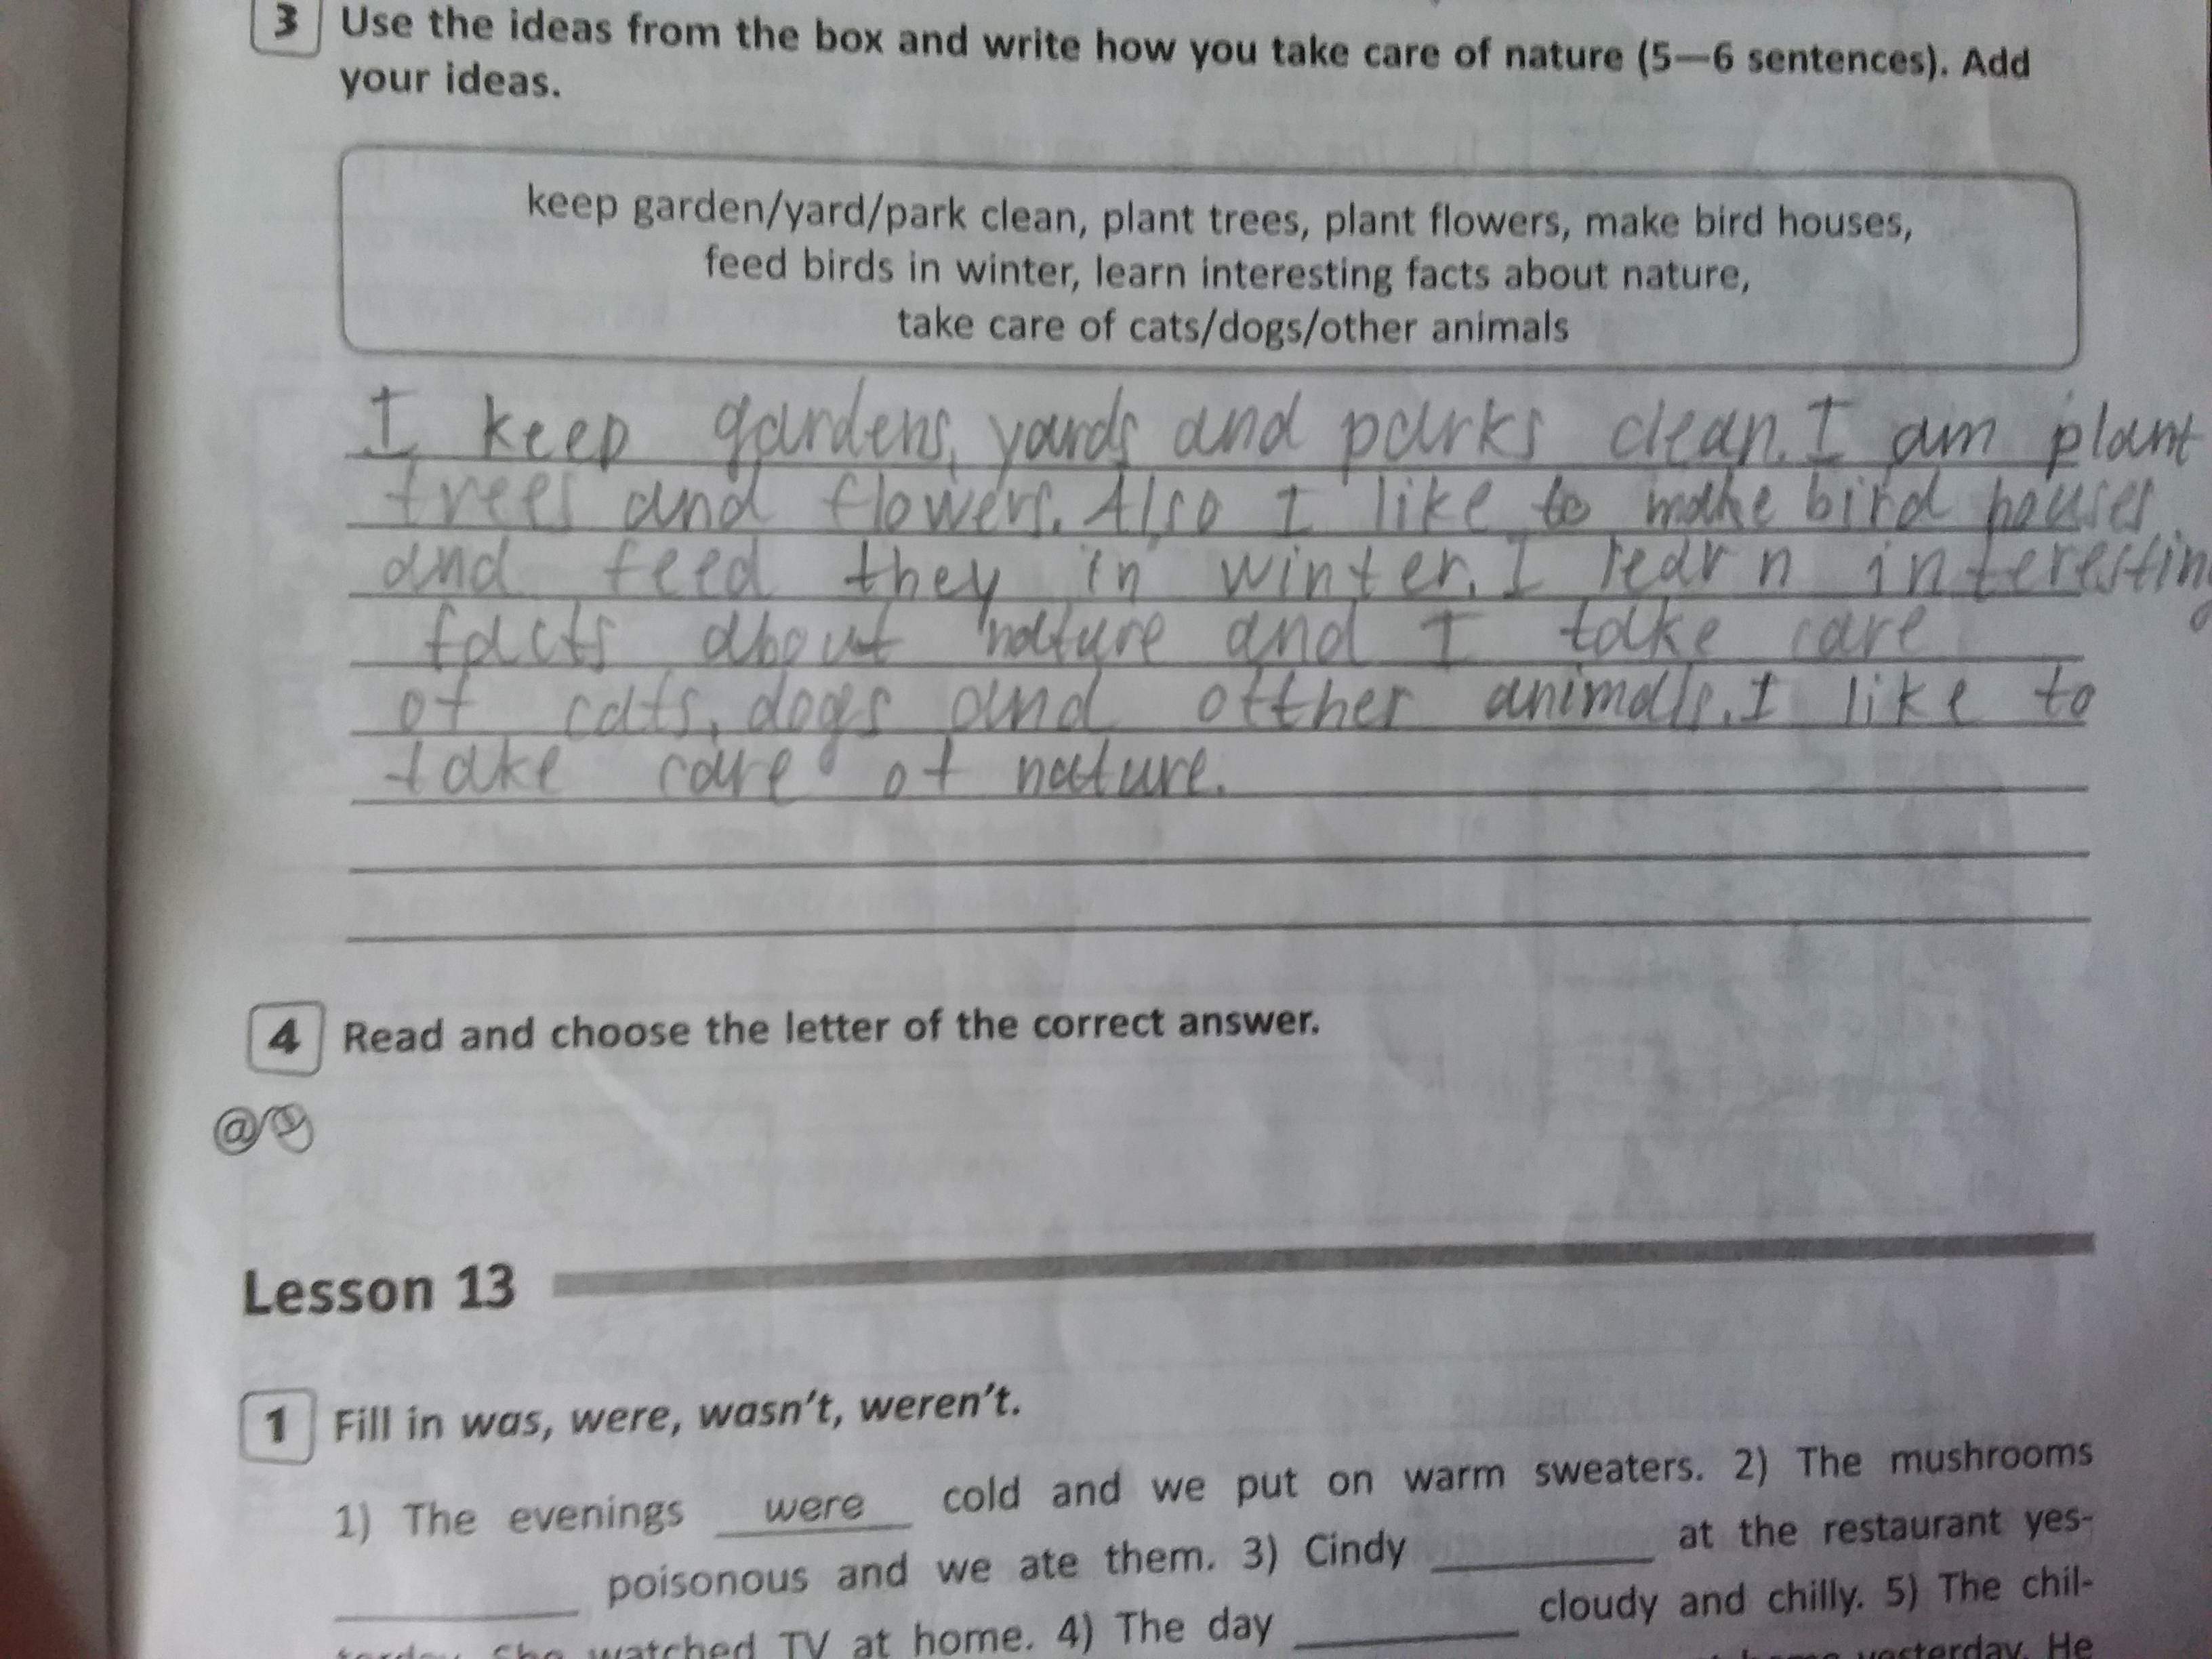 3 Use the ideas from the box and write how you take care of nature (5—6 sentences). Add
your ideas.
keep garden/yard/park clean, plant trees, plant flowers, make bird houses,
feed birds in winter, learn interesting facts about nature,
take care of cats/dogs/other animals
I keep gardens, yards and parks clean. I am plant
trees and flowers. Also I like to make bird houses
and feed they in winter. I learn interesting
facts about nature and I take care
of cats, dogs and otther animals. I like to
take care of nature.
4 Read and choose the letter of the correct answer.
@
Lesson 13
1 Fill in was, were, wasn't, weren't.
1) The evenings were cold and we put on warm sweaters. 2) The mushrooms
poisonous and we ate them. 3) Cindy at the restaurant yes-
terday. She watched TV at home. 4) The day cloudy and chilly. 5) The chil-
yesterday. He